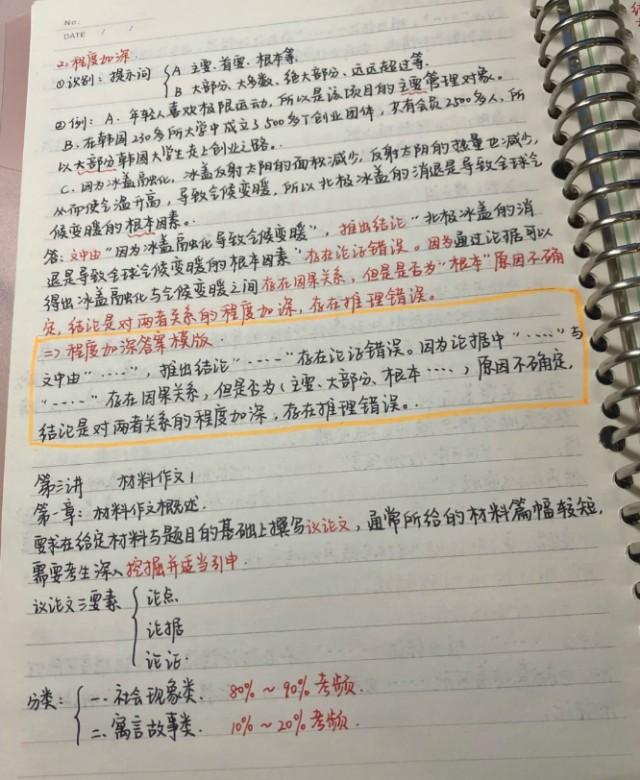 No.
DATE / /
2. 程度加深:
①识别: 提示词 { A. 主要、首要、根本等.
B. 大部分、大多数、绝大部分、远远超过等.
②例: A. 年轻人喜欢极限运动, 所以是该项目的主要管理对象。
B. 在韩国230多所大学中成立了500多个创业团体, 共有会员2500多人, 所
以大部分韩国大学生走上创业之路。
C. 因为冰盖融化, 冰盖反射太阳的面积减少, 反射太阳的热量也减少,
从而使气温升高, 导致气候变暖, 所以北极冰盖的消退是导致全球气
候变暖的根本因素。
答: 文中由“因为冰盖融化导致气候变暖”, 推出结论“北极冰盖的消
退是导致全球气候变暖的根本因素”存在论证错误。因为通过论据可以
得出冰盖融化与气候变暖之间存在因果关系, 但是是否为“根本”原因不确
定, 结论是对两者关系的程度加深, 存在推理错误。
=> 程度加深答案模版.
文中由“……”, 推出结论“……”存在论证错误。因为论据中“……”与
“……”存在因果关系, 但是否为(主要、大部分、根本……)原因不确定,
结论是对两者关系的程度加深, 存在推理错误。
第三讲 材料作文1
第一章: 材料作文概述.
要求在给定材料与题目的基础上撰写议论文, 通常所给的材料篇幅较短,
需要考生深入挖掘并适当引申.
议论文三要素 { 论点
论据
论证.
分类: { 一. 社会现象类. 80%~90%考频.
二. 寓言故事类. 10%~20%考频.